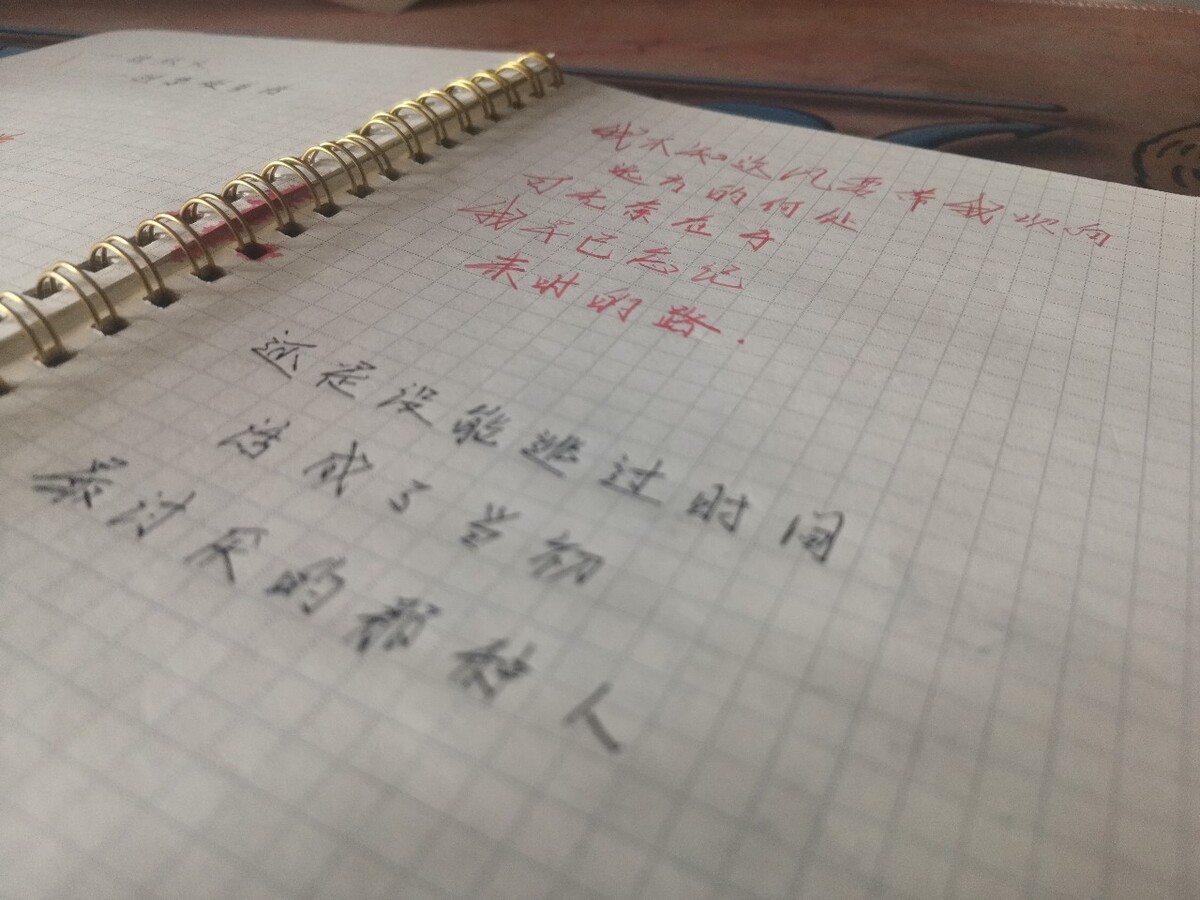 我不知这风要将我吹向
远方的何处
可无奈在于
我早已忘记
来时的路.
还是没能逃过时间
活成了当初
最讨厌的那种人